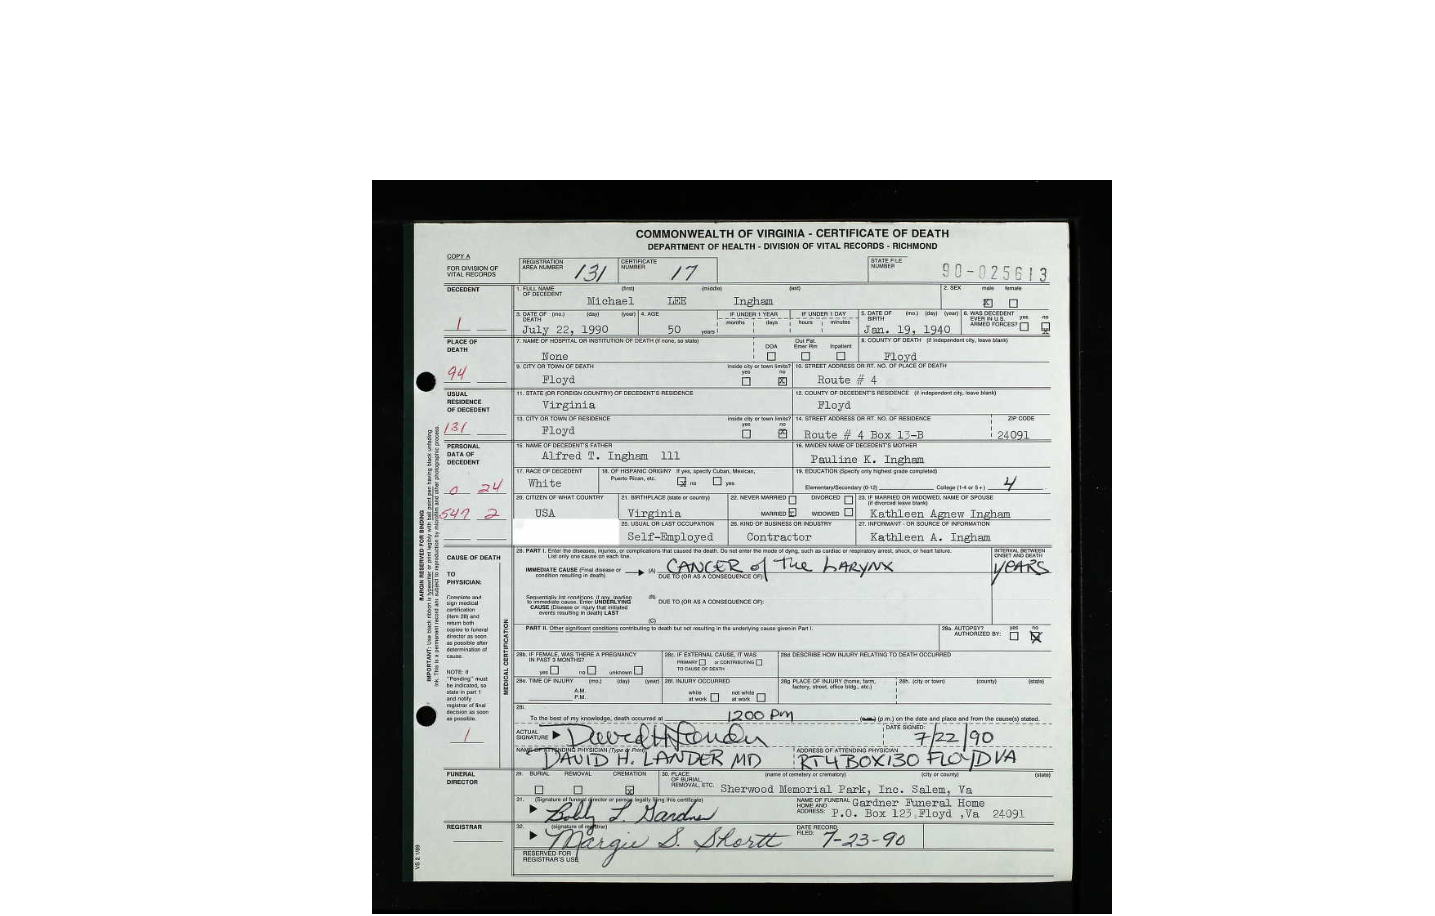 COMMONWEALTH OF VIRGINIA - CERTIFICATE OF DEATH
DEPARTMENT OF HEALTH - DIVISION OF VITAL RECORDS - RICHMOND
COPY A
FOR DIVISION OF VITAL RECORDS
REGISTRATION AREA NUMBER 131 CERTIFICATE NUMBER 17 STATE FILE NUMBER 90-025613
DECEDENT
1. FULL NAME OF DECEDENT (first) (middle) (last) 2. SEX male female
Michael LEE Ingham X
3. DATE OF DEATH (mo.) (day) (year) 4. AGE IF UNDER 1 YEAR IF UNDER 1 DAY 5. DATE OF BIRTH (mo.) (day) (year) 6. WAS DECEDENT EVER IN U.S. ARMED FORCES? yes no
months days hours minutes
1 July 22, 1990 50 years Jan. 19, 1940
PLACE OF DEATH
7. NAME OF HOSPITAL OR INSTITUTION OF DEATH (if none, so state) DOA Out Pat. Emer Rm Inpatient 8. COUNTY OF DEATH (if independent city, leave blank)
None Floyd
94
9. CITY OR TOWN OF DEATH inside city or town limits? yes no 10. STREET ADDRESS OR RT. NO. OF PLACE OF DEATH
Floyd X Route # 4
USUAL RESIDENCE OF DECEDENT
11. STATE (OR FOREIGN COUNTRY) OF DECEDENT'S RESIDENCE 12. COUNTY OF DECEDENT'S RESIDENCE (if independent city, leave blank)
Virginia Floyd
131
13. CITY OR TOWN OF RESIDENCE inside city or town limits? yes no 14. STREET ADDRESS OR RT. NO. OF RESIDENCE ZIP CODE
Floyd X Route # 4 Box 13-B 24091
PERSONAL DATA OF DECEDENT
15. NAME OF DECEDENT'S FATHER 16. MAIDEN NAME OF DECEDENT'S MOTHER
Alfred T. Ingham lll Pauline K. Ingham
17. RACE OF DECEDENT 18. OF HISPANIC ORIGIN? If yes, specify Cuban, Mexican, Puerto Rican, etc. no yes 19. EDUCATION (Specify only highest grade completed)
White X Elementary/Secondary (0-12) College (1-4 or 5+) 4
0 24
20. CITIZEN OF WHAT COUNTRY 21. BIRTHPLACE (state or country) 22. NEVER MARRIED DIVORCED MARRIED WIDOWED 23. IF MARRIED OR WIDOWED, NAME OF SPOUSE (if divorced leave blank)
547 2 USA Virginia Kathleen Agnew Ingham
25. USUAL OR LAST OCCUPATION 26. KIND OF BUSINESS OR INDUSTRY 27. INFORMANT - OR SOURCE OF INFORMATION
Self-Employed Contractor Kathleen A. Ingham
CAUSE OF DEATH
28. PART I. Enter the diseases, injuries, or complications that caused the death. Do not enter the mode of dying, such as cardiac or respiratory arrest, shock, or heart failure.
List only one cause on each line. INTERVAL BETWEEN ONSET AND DEATH
IMMEDIATE CAUSE (Final disease or condition resulting in death) (A) CANCER of The LARYNX YEARS
DUE TO (OR AS A CONSEQUENCE OF):
Sequentially list conditions, if any, leading to immediate cause. Enter UNDERLYING CAUSE (Disease or injury that initiated events resulting in death) LAST
(B)
DUE TO (OR AS A CONSEQUENCE OF):
(C)
TO PHYSICIAN:
Complete and sign medical certification (item 28) and return both copies to funeral director as soon as possible after determination of cause.
NOTE: If "Pending" must be indicated, so state in part 1 and notify registrar of final decision as soon as possible.
1
MEDICAL CERTIFICATION
PART II. Other significant conditions contributing to death but not resulting in the underlying cause given in Part I. 28a. AUTOPSY? AUTHORIZED BY: yes no
28b. IF FEMALE, WAS THERE A PREGNANCY IN PAST 3 MONTHS? yes no unknown 28c. IF EXTERNAL CAUSE, IT WAS PRIMARY or CONTRIBUTING TO CAUSE OF DEATH 28d DESCRIBE HOW INJURY RELATING TO DEATH OCCURRED
28e. TIME OF INJURY (mo.) (day) (year) A.M. P.M. 28f. INJURY OCCURRED while at work not while at work 28g PLACE OF INJURY (home, farm, factory, street, office bldg., etc.) 28h. (city or town) (county) (state)
28i.
To the best of my knowledge, death occurred at 1200 pm (p.m.) on the date and place and from the cause(s) stated.
ACTUAL SIGNATURE David H Lander DATE SIGNED: 7/22/90
NAME OF ATTENDING PHYSICIAN (Type or Print) ADDRESS OF ATTENDING PHYSICIAN
DAVID H. LANDER MD RT 4 BOX 130 FLOYD VA
FUNERAL DIRECTOR
29. BURIAL REMOVAL CREMATION 30. PLACE OF BURIAL, REMOVAL, ETC. (name of cemetery or crematory) (city or county) (state)
X Sherwood Memorial Park, Inc. Salem, Va
31. (Signature of funeral director or person legally filing this certificate) NAME OF FUNERAL HOME AND ADDRESS: Gardner Funeral Home
Bobby L. Gardner P.O. Box 123,Floyd ,Va 24091
REGISTRAR
32. (signature of registrar) DATE RECORD FILED:
Margie S. Shortt 7-23-90
RESERVED FOR REGISTRAR'S USE
MARGIN RESERVED FOR BINDING